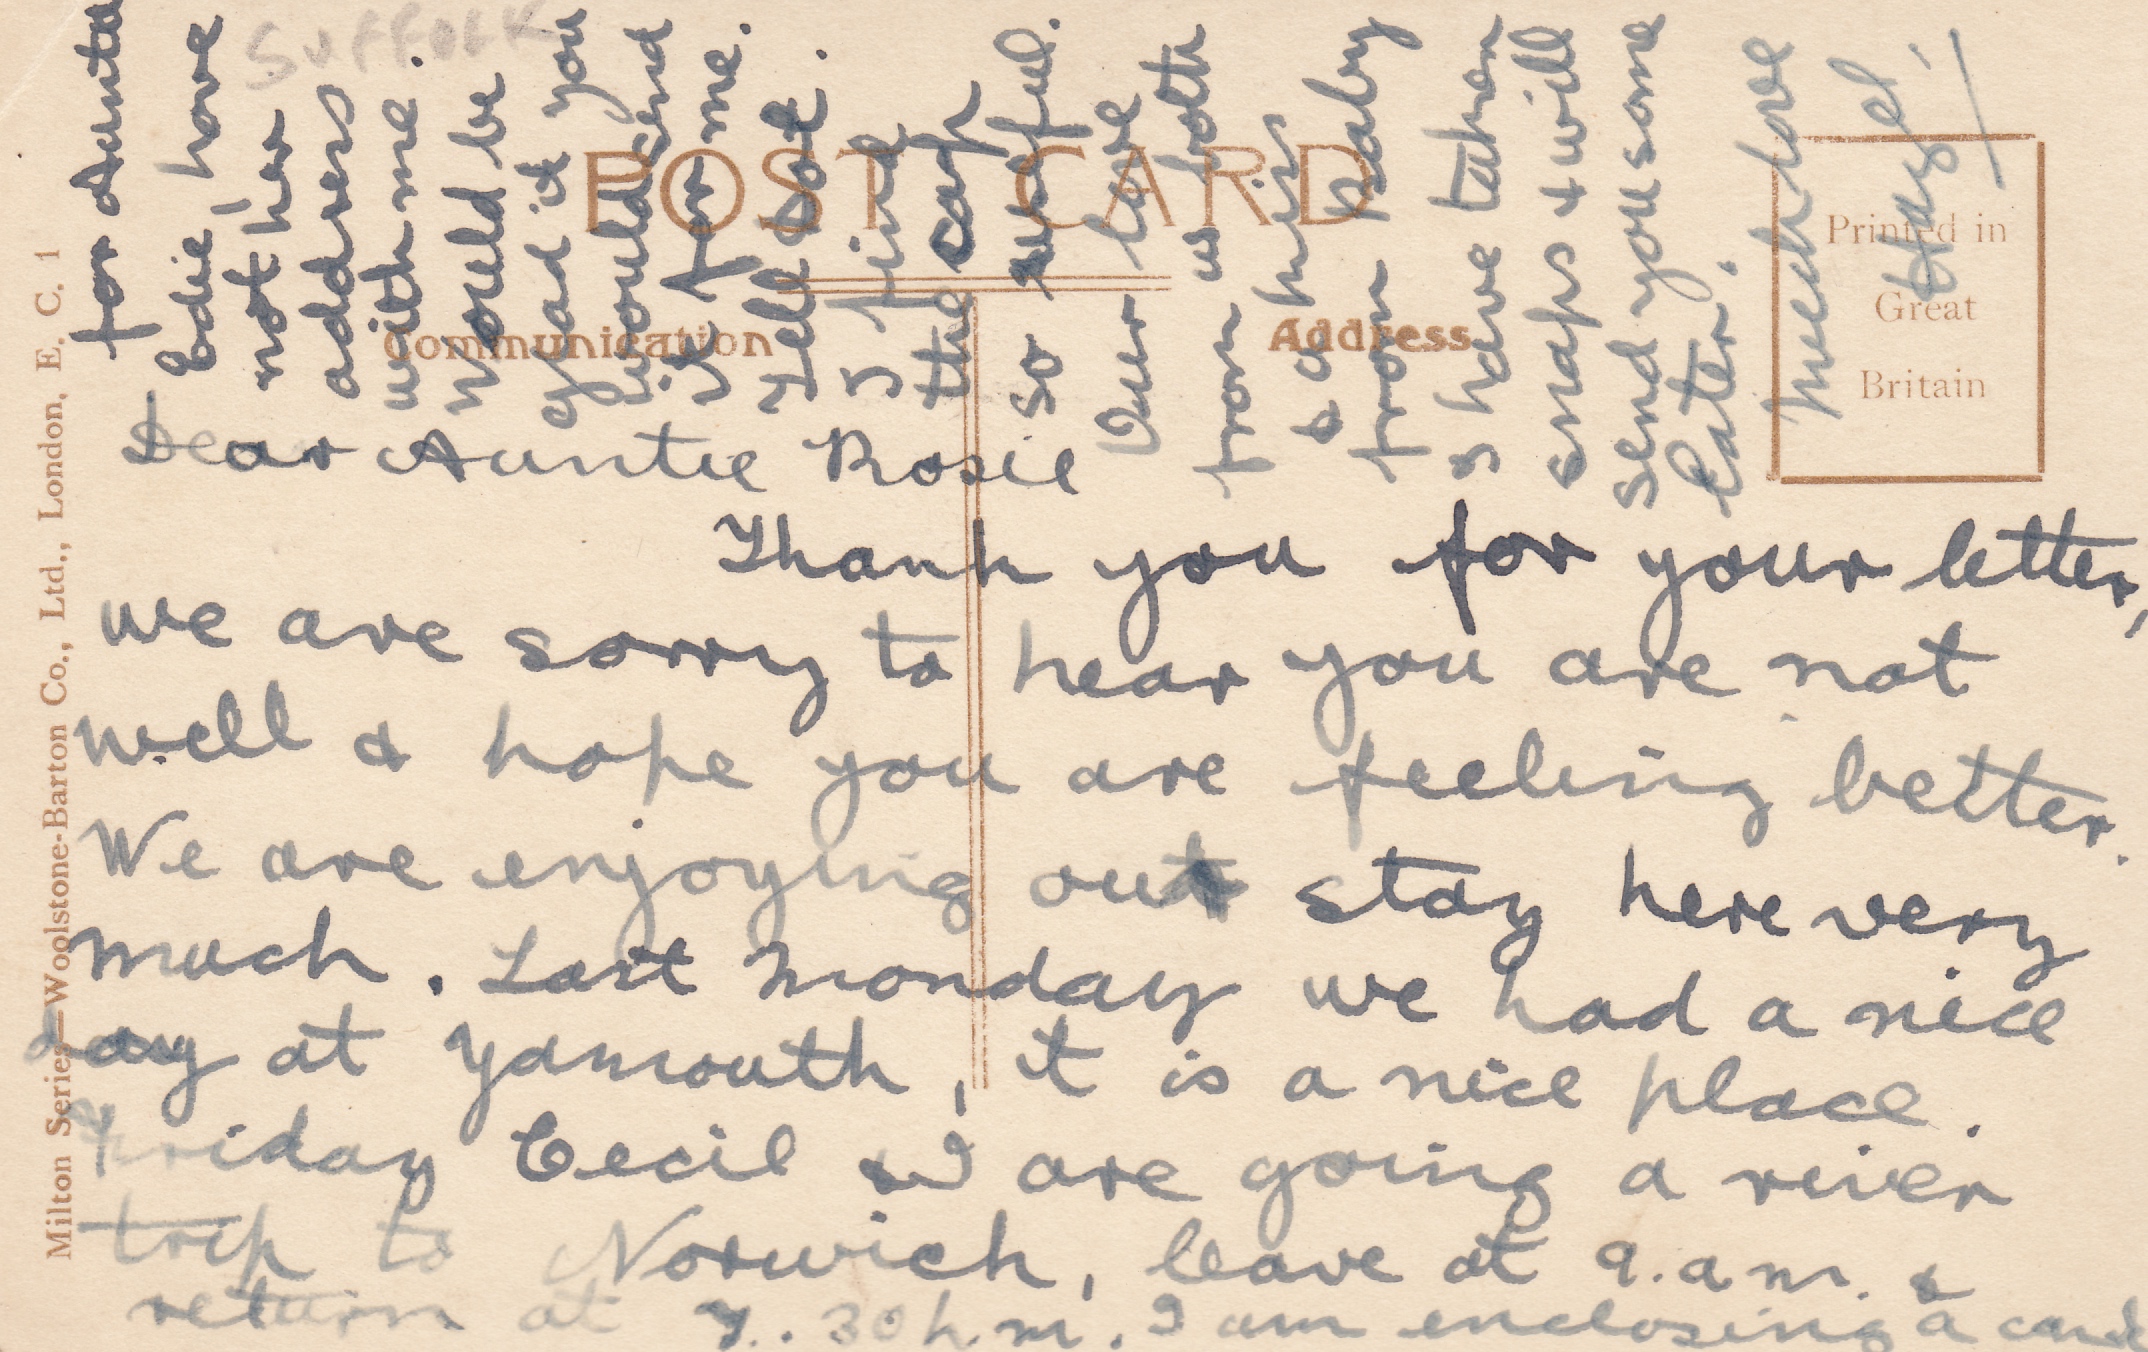 SUFFOLK
POST CARD
Communication
Address
Printed in
Great
Britain
Milton Series—Woolstone-Barton Co., Ltd., London, E. C. 1
Dear Auntie Rosie
Thank you for your letter,
we are sorry to hear you are not
well & hope you are feeling better.
We are enjoying our stay here very
much. Last Monday we had a nice
day at Yamouth, it is a nice place.
Friday Cecil & I are going a river
trip to Norwich, leave at 9.a.m. &
return at 7.30 p.m. I am enclosing a card
for Auntie
Edie have
not her
address
with me.
Would be
glad if you
would send
it for me.
Tell Dot.
I find
the cap
so useful.
Our love
from us both
& a kiss
from Baby
I have taken
snaps & will
send you some
later.
Much love
Hazel.